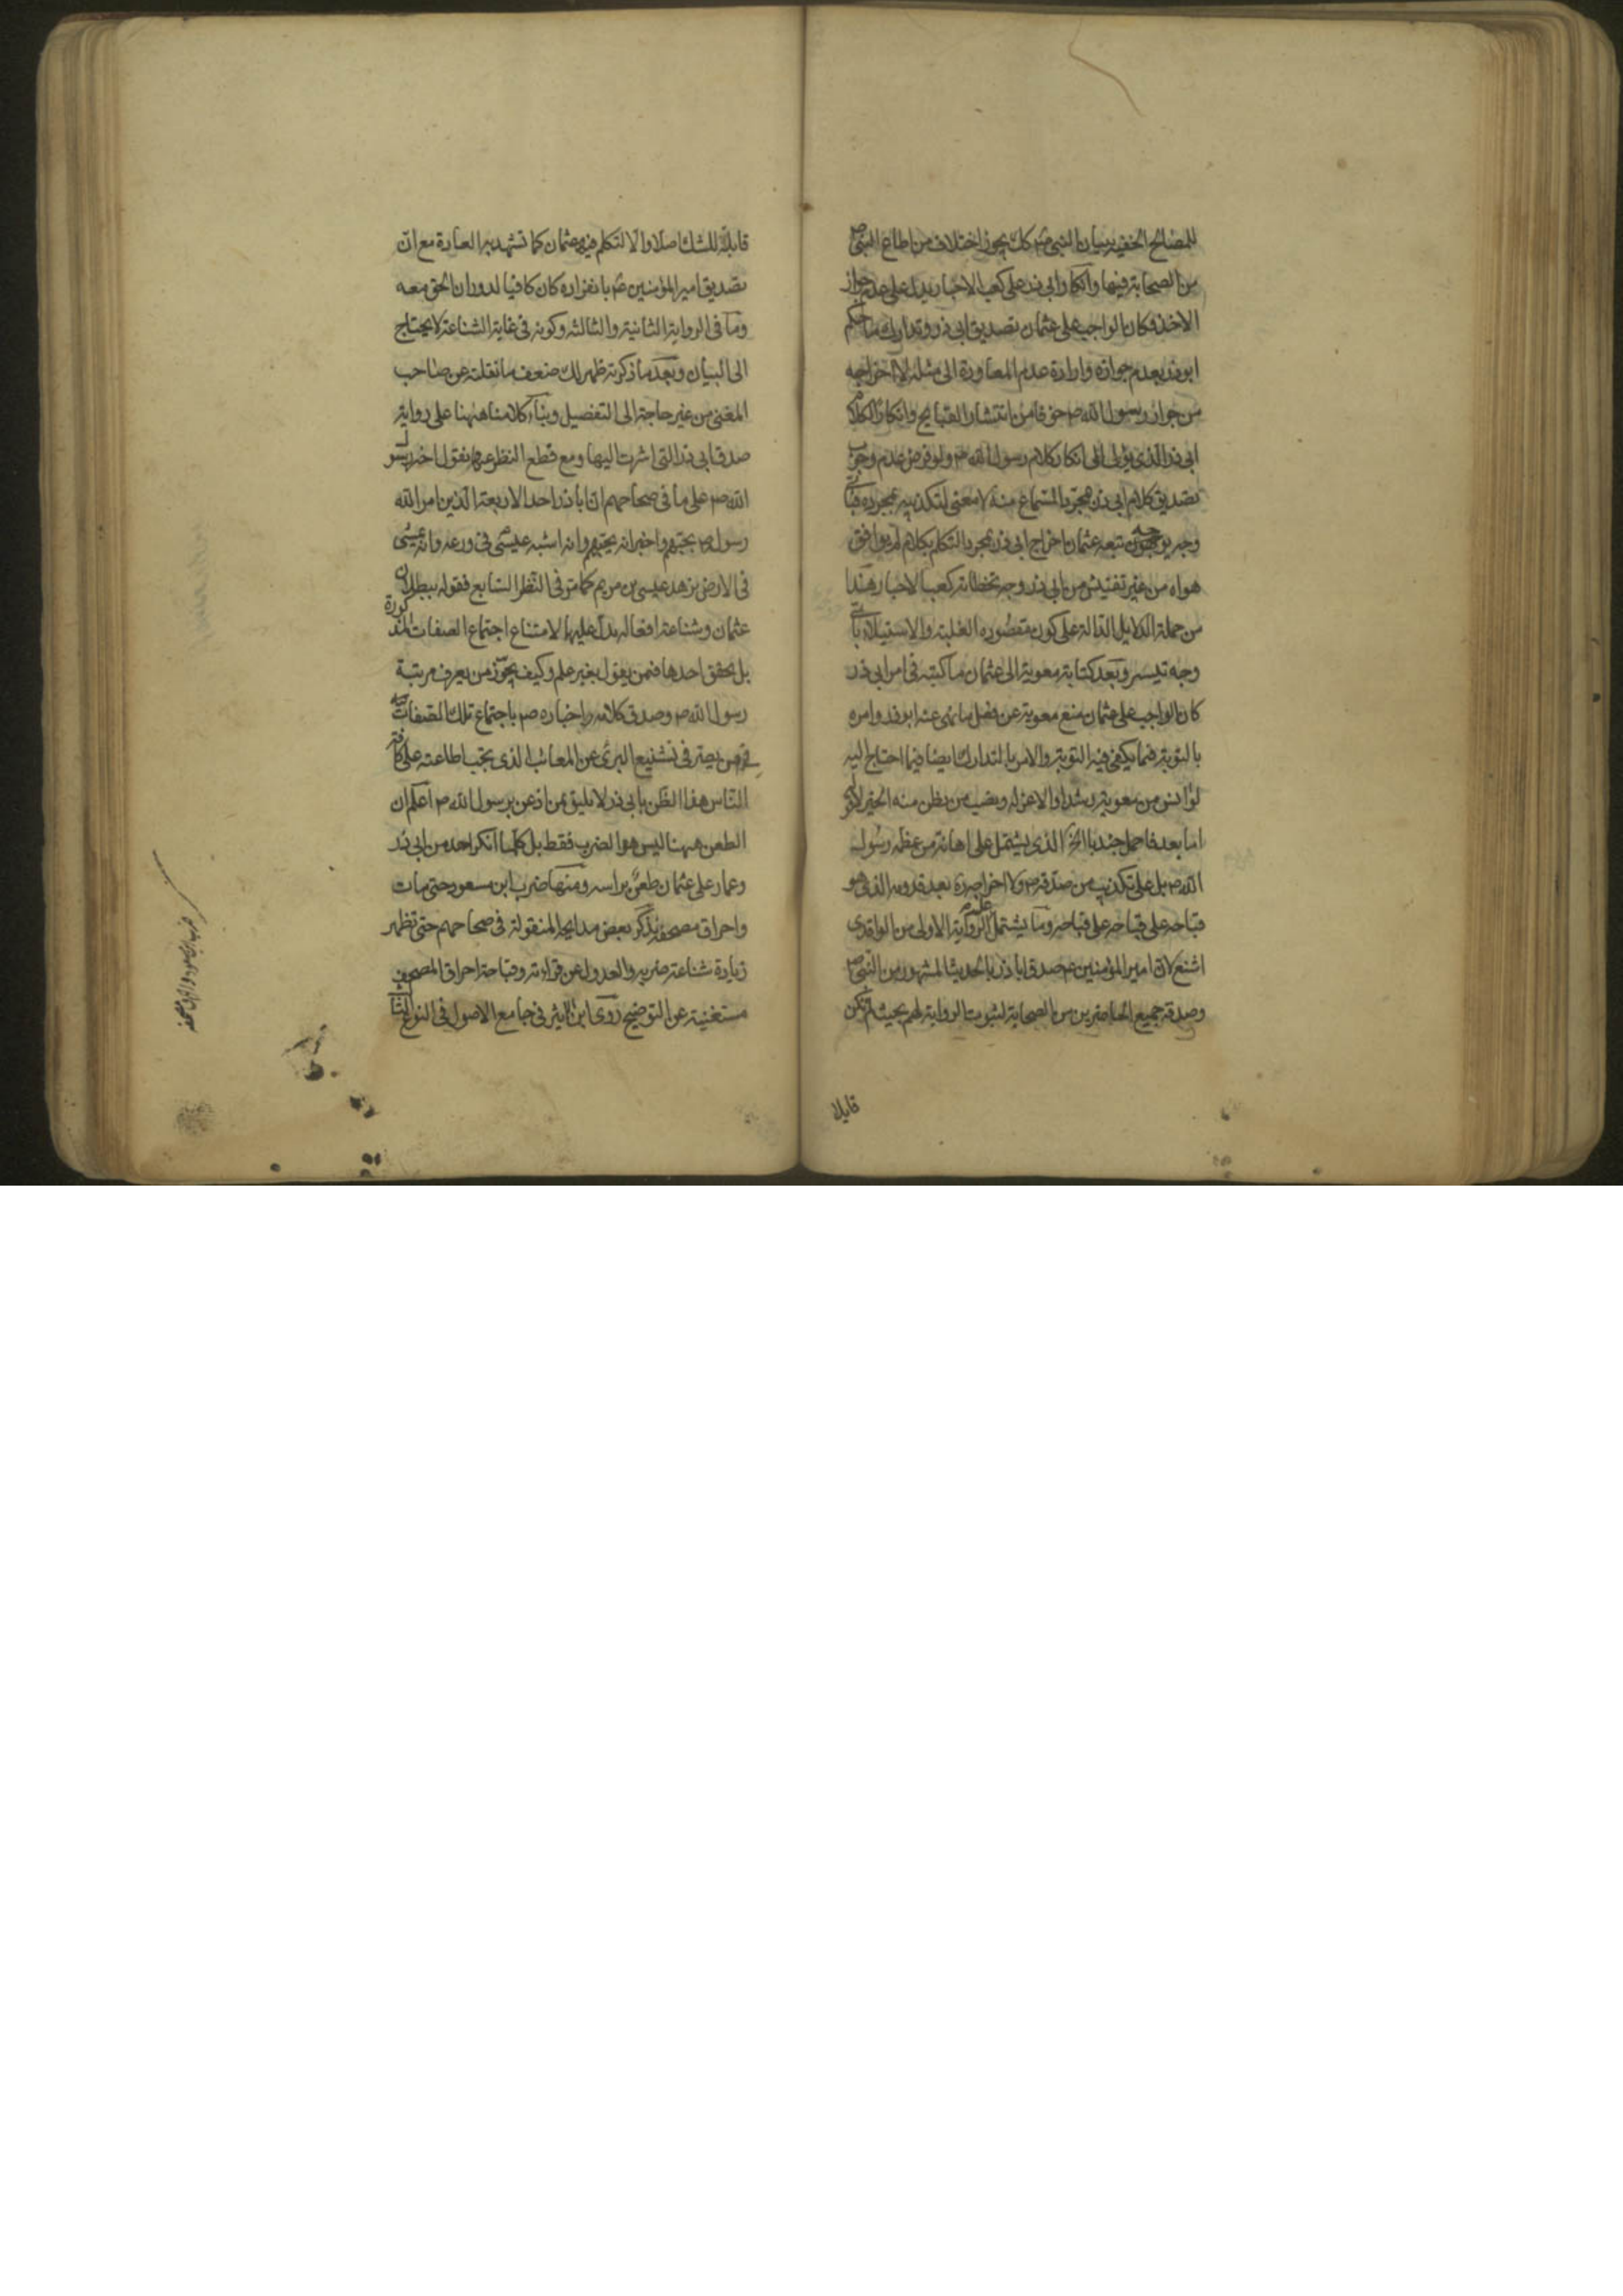 للمصالح الخفية ببيان النبي ص كك يجوز اختلاف من اطاع النبي ص
من الصحابة فيها وانكار ابي ذر على كعب الاحبار يدل على عدم جواز
الاخذ فكان الواجب على عثمان تصديق ابي ذر وتدارك ما حكم
ابو ذر بعدم جوازه وارادة عدم المعاودة الى مثله لا اخراجه
من جوار رسول الله ص خوفا من انتشار القبايح وانكار الكلام
ابي ذر الذي يؤل الى انكار كلام رسول الله ص ولو فرض عدم وجوب
تصديق كلام ابي ذر بمجرد السماع منه لا معنى لتكذيبه بمجرده فباي
وجه يوجه تتبعه عثمان باخراج ابي ذر بمجرد التكلم بكلام لم يوافق
هواه من غير تفتيش من ابي ذر وجه تخطئة كعب الاحبار هذا
من جملة الدلايل الدالة على كون مقصوده الغلبة والاستيلاء باي
وجه تيسر وبعد كتابة معوية الى عثمان ما كتبه في امر ابي ذر
كان الواجب على عثمان منع معوية عن فعل ما نهى عنه ابو ذر وامره
بالتوبة فيما يكفي فيه التوبة والامر بالتدارك ايضا فيما احتاج اليه
لو انس من معوية رشدا والا عزله ونصب من يظن منه الخير لا
اما بعد فاحمل جندبا الخ الذي يشتمل على اهانة من عظمه رسول
الله ص بل على تكذيب من صدقه ص ولا اخراجه بعد قدومه الذي هو
قباحة على قباحة على قباحة وما يشتمل عليه الرواية الاولى من الواقدي
اشنع لان امير المؤمنين ع صدق ابا ذر بالحديث المشهور من النبي ص
وصدقه جميع الحاضرين من الصحابة لثبوت الرواية لهم بحيث لم تكن
قابلة
قابلة للشك اصلا والا لتكلم فيه عثمان كما تشهد به العادة مع ان
تصديق امير المؤمنين ع بانفراده كان كافيا لدوران الحق معه
وما في الرواية الثانية والثالثة وكونه في غاية الشناعة لا يحتاج
الى البيان وبعد ما ذكرته ظهر لك ضعف ما نقلته عن صاحب
المغني من غير حاجة الى التفصيل وبناء كلامنا هيهنا على رواية
صدق ابي ذر التي اشرت اليها ومع قطع النظر عنها نقول اخبر رسول
الله ص على ما في صحاحهم ان ابا ذر احد الاربعة الذين امر الله
رسوله ص بحبهم واخبر انه يحبهم وانه اشبه عيسى في ورعه وانه يمشي
في الارض بزهد عيسى بن مريم كما مر في النظر السابع فقوله ببطلان
عثمان وشناعة افعاله يدل عليها لامتناع اجتماع الصفات المذكورة
بل تحقق احدها فمن يقول بغير علم وكيف يجوز من يعرف مرتبة
رسول الله ص وصدق كلامه واخباره ص باجتماع تلك الصفات
من يصر في تشنيع البرئ عن المعائب الذي يجب اطاعته على كافة
الناس هذا الظن بابي ذر لا يليق بمن اذعن برسول الله ص اعلم ان
الطعن هيهنا ليس هو الضرب فقط بل كلما انكر احد من ابي ذر
وعمار على عثمان طعن براسه ومنها ضرب ابن مسعود حتى مات
واحراق مصحفه نذكر بعض مدايحه المنقولة في صحاحهم حتى تظهر
زيادة شناعة ضربه والعدول عن قراءته وقباحة احراق المصحف
مستغنية عن التوضيح روى ابن الاثير في جامع الاصول في النوع الثاني
ضرب ابن مسعود واحراق مصحفه